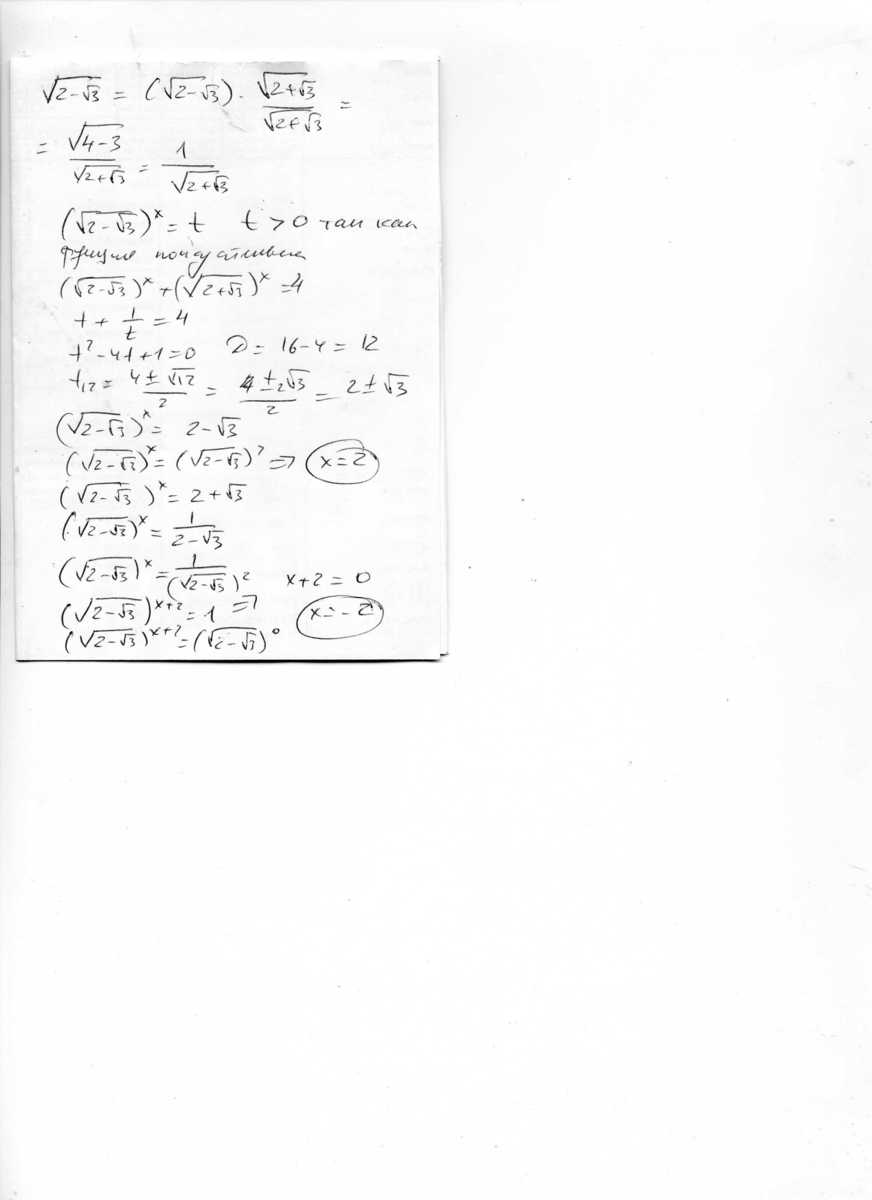 √(2-√3) = (√(2-√3)) · √(2+√3)/√(2+√3) =
= √(4-3)/√(2+√3) = 1/√(2+√3)
(√(2-√3))^x = t t > 0 так как
(√(2-√3))^x + (√(2+√3))^x = 4
t + 1/t = 4
t² - 4t + 1 = 0 D = 16 - 4 = 12
t₁₂ = (4 ± √12)/2 = (4 ± 2√3)/2 = 2 ± √3
(√(2-√3))^x = 2 - √3
(√(2-√3))^x = (√(2-√3))² => x = 2
(√(2-√3))^x = 2 + √3
(√(2-√3))^x = 1/(2-√3)
(√(2-√3))^x = 1/(√(2-√3))² x + 2 = 0
(√(2-√3))^(x+2) = 1 => x = -2
(√(2-√3))^(x+2) = (√(2-√3))^0